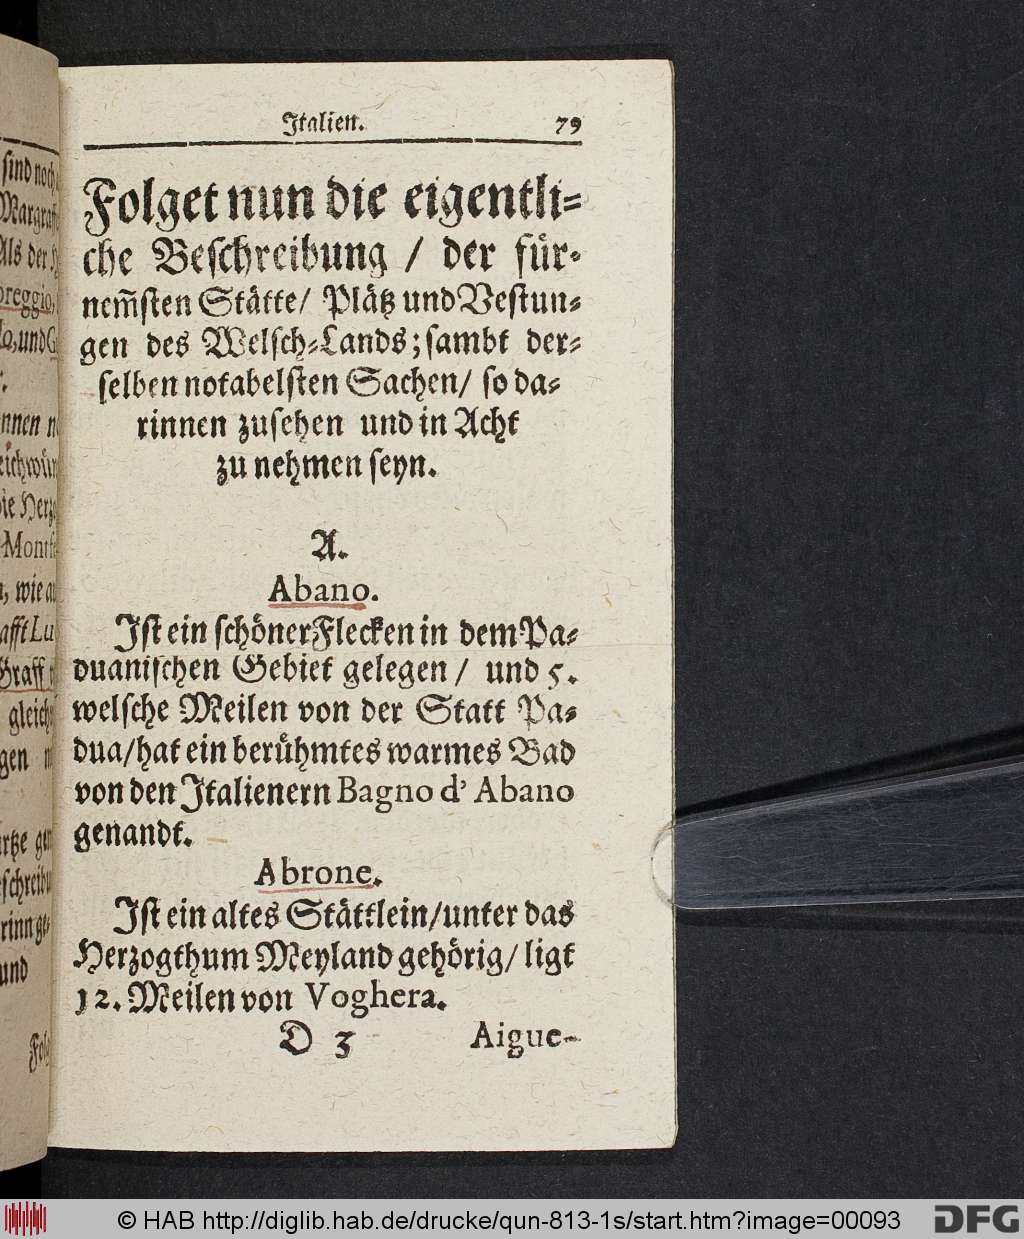 Italien. 79
Folget nun die eigentli-
che Beſchreibung / der für-
nem̃ſten Stätte / Plätz und Veſtun-
gen des Welſch-Lands; ſambt der-
ſelben notabelſten Sachen / ſo da-
rinnen zuſehen und in Acht
zu nehmen ſeyn.
A.
Abano.
Iſt ein ſchöner Flecken in dem Pa-
duaniſchen Gebiet gelegen / und 5.
welſche Meilen von der Statt Pa-
dua / hat ein berühmtes warmes Bad
von den Italienern Bagno d' Abano
genandt.
Abrone.
Iſt ein altes Stättlein / unter das
Herzogthum Meyland gehörig / ligt
12. Meilen von Voghera.
D 3 Aigue-
© HAB http://diglib.hab.de/drucke/qun-813-1s/start.htm?image=00093 DFG